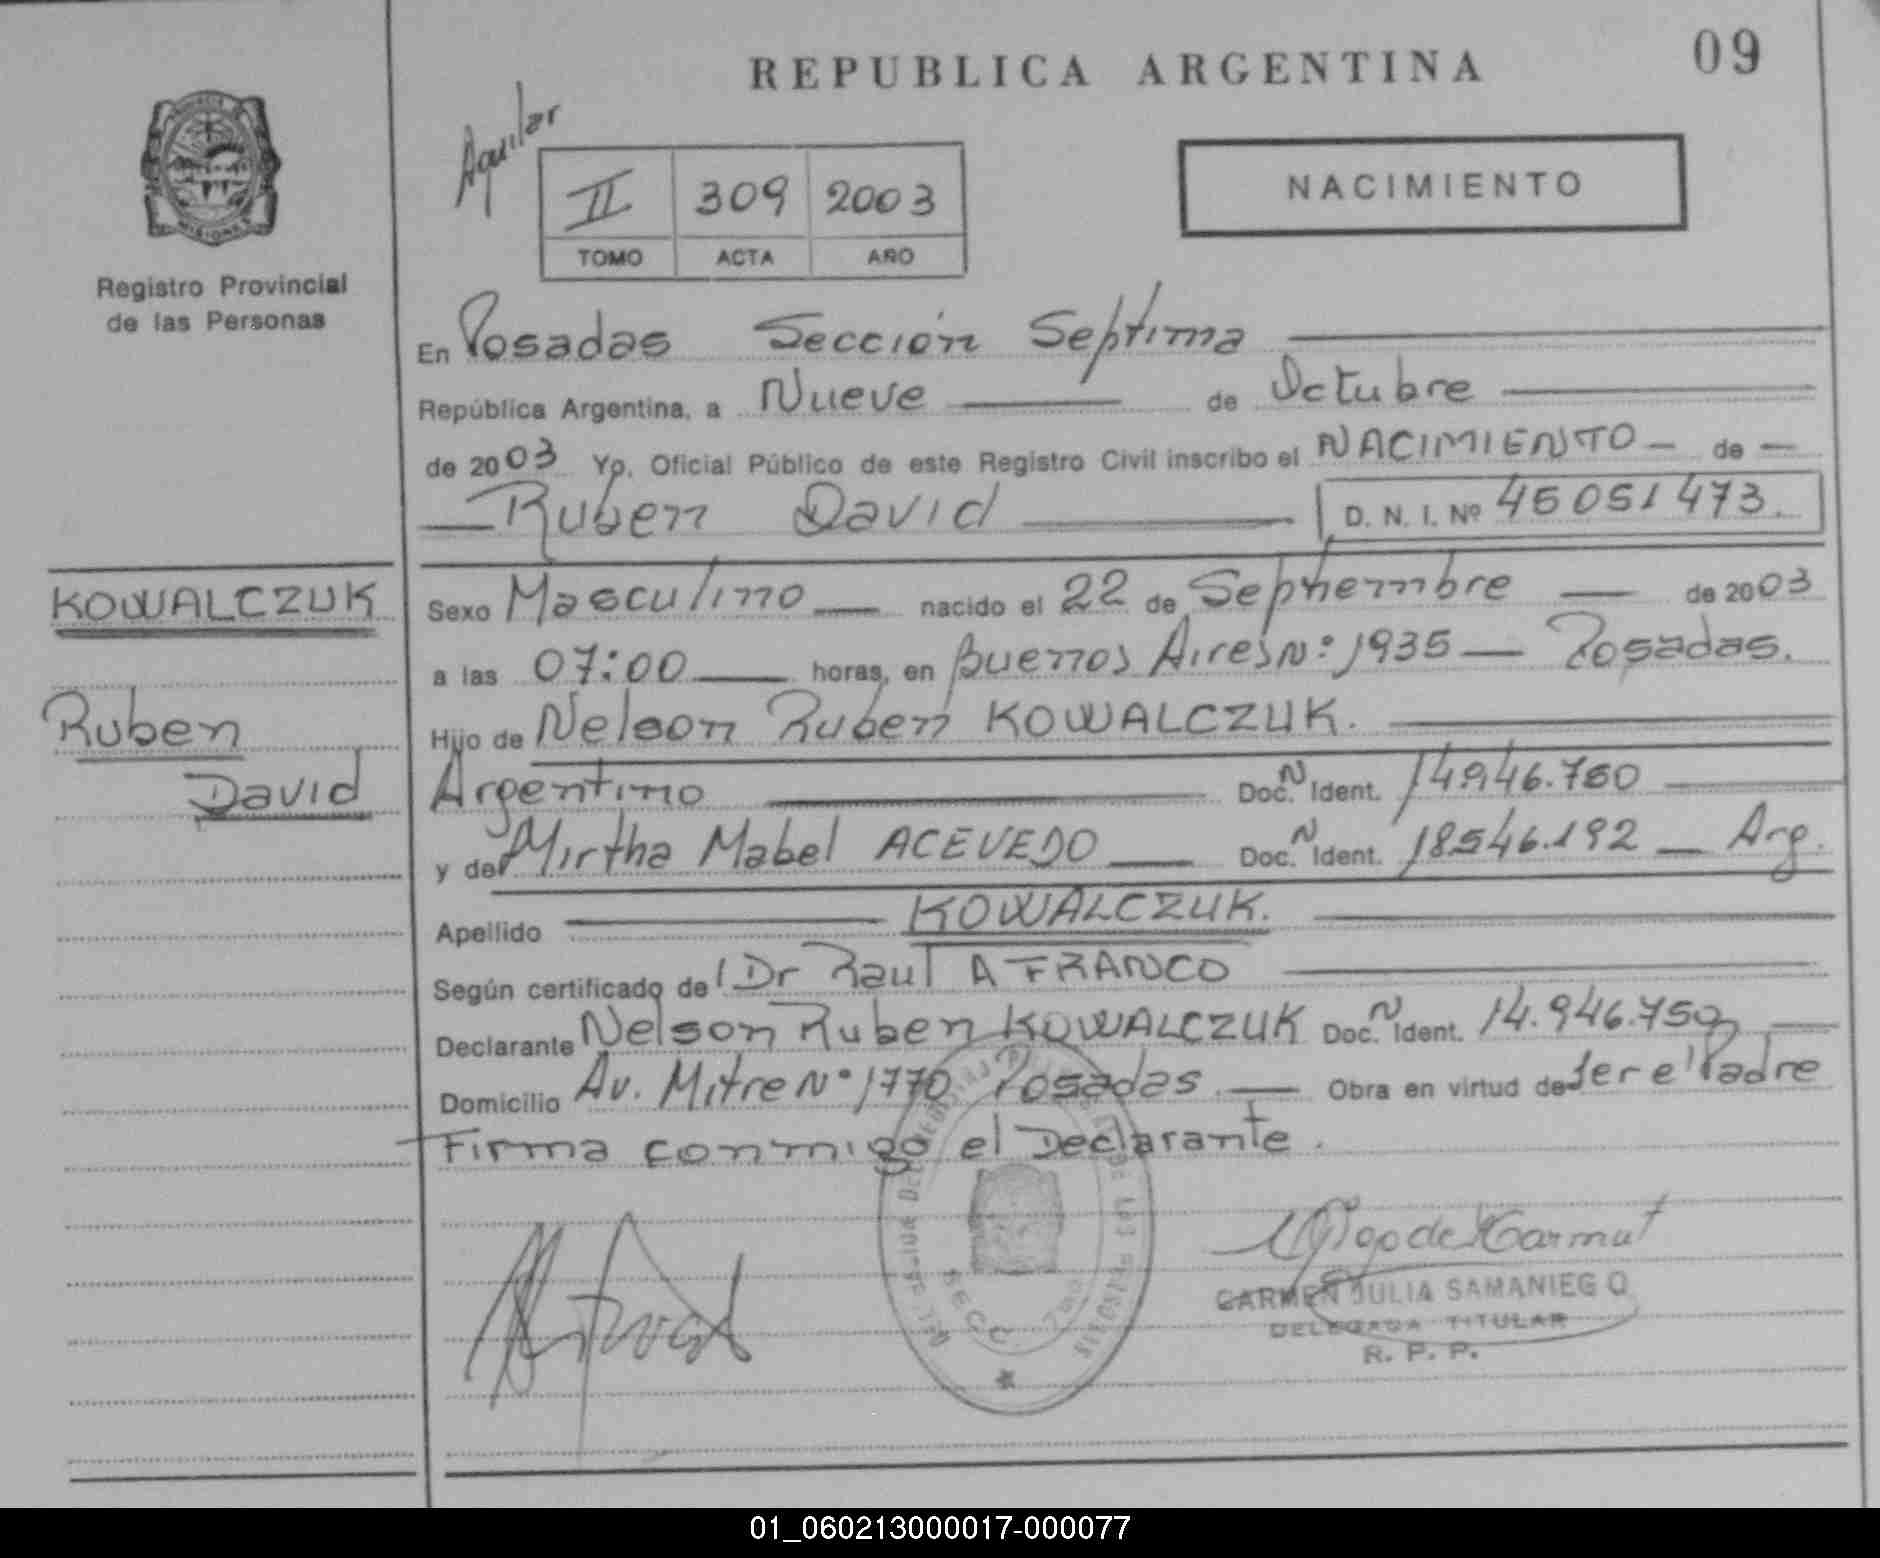 REPUBLICA ARGENTINA
09
Aguilar
II 309 2003
TOMO ACTA AÑO
NACIMIENTO
MISIONES
Registro Provincial
de las Personas
En Posadas Sección Septima
República Argentina, a Nueve de Octubre
de 2003 Yo, Oficial Público de este Registro Civil inscribo el NACIMIENTO de
Ruben David D. N. I. Nº 45051473.
KOWALCZUK
Ruben
David
Sexo Masculino nacido el 22 de Septiembre de 2003
a las 07:00 horas, en Buenos Aires Nº 1935 — Posadas.
Hijo de Nelson Ruben KOWALCZUK.
Argentino Doc. N Ident. 14.946.750
y de Mirtha Mabel ACEVEDO Doc. N Ident. 18546.192 — Arg.
Apellido KOWALCZUK.
Según certificado de Dr Raul A FRANCO
Declarante Nelson Ruben KOWALCZUK Doc. N Ident. 14.946.750
Domicilio Av. Mitre Nº 1770 Posadas. — Obra en virtud de Ser el Padre
Firma conmigo el Declarante.
SECC. 7ma
CARMEN JULIA SAMANIEGO
DELEGADA TITULAR
R. P. P.
01_060213000017-000077